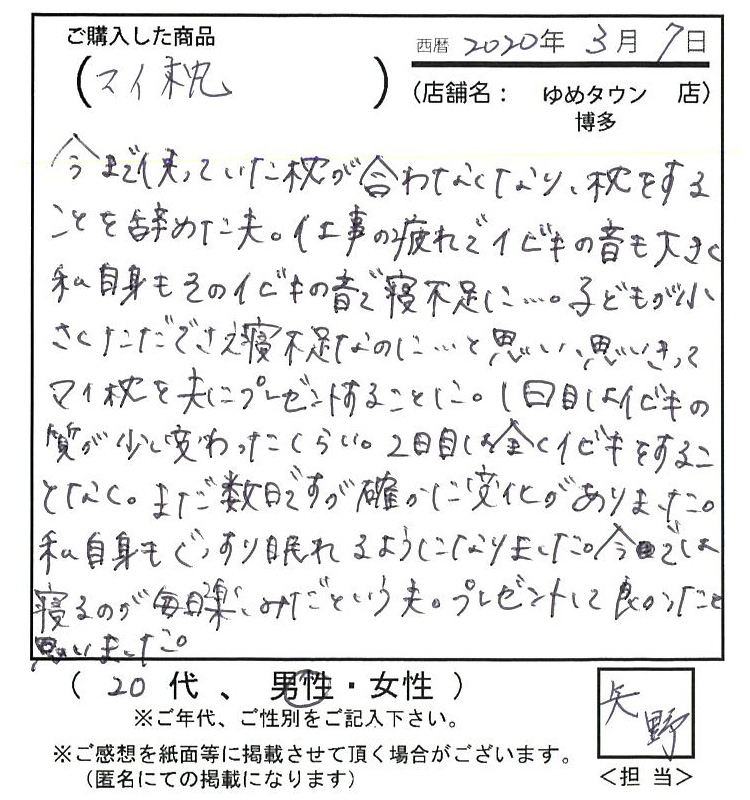 ご購入した商品
西暦 2020年 3月 7日
(マイ枕)
(店舗名： ゆめタウン 店)
博多
今まで使っていた枕が合わなくなり、枕をする
ことを辞めた夫。仕事の疲れでイビキの音も大きく
私自身もそのイビキの音で寝不足に…。子どもが小
さくただでさえ寝不足なのに…と思い、思いきって
マイ枕を夫にプレゼントすることに。1日目はイビキの
質が少し変わったくらい。2日目は全くイビキをするこ
となく。まだ数日ですが確かに変化がありました。
私自身もぐっすり眠れるようになりました。今では
寝るのが毎日楽しみだという夫。プレゼントして良かったと
思いました。
( 20 代 、 男性・女性 )
※ご年代、ご性別をご記入下さい。
※ご感想を紙面等に掲載させて頂く場合がございます。
(匿名にての掲載になります)
矢野
＜担 当＞